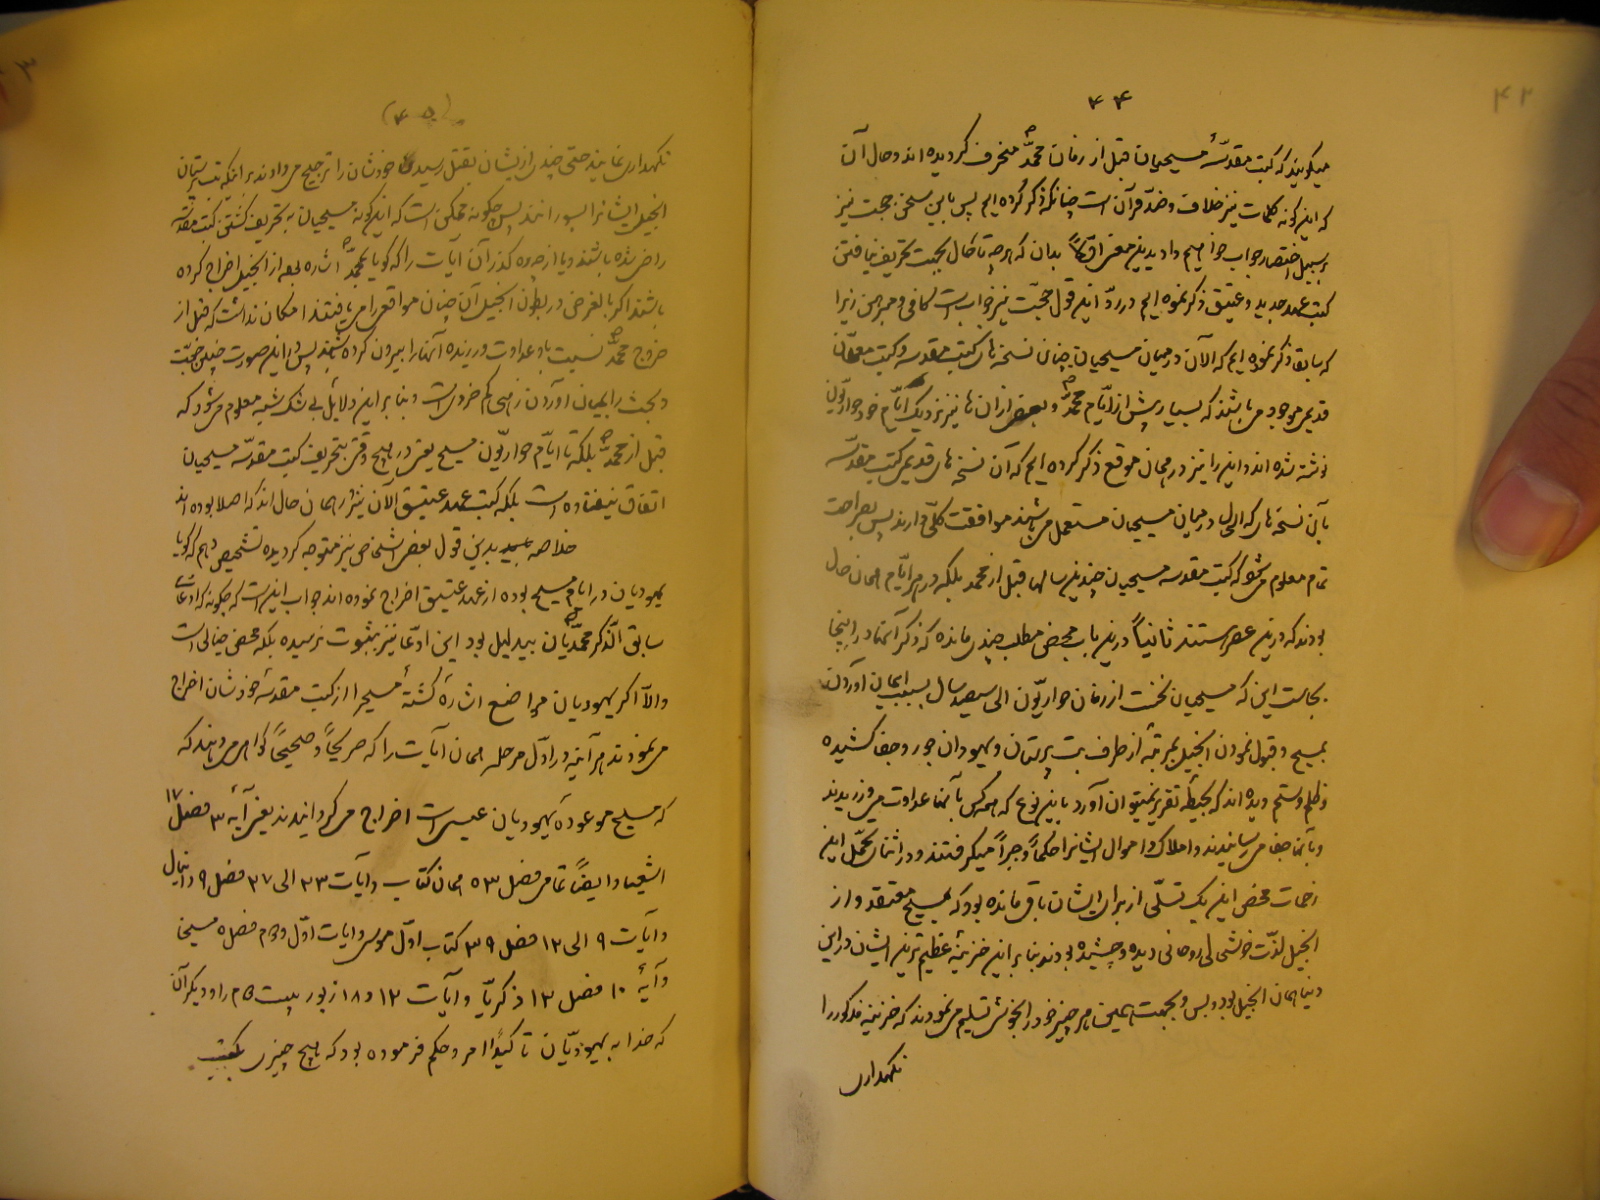 ۴۴
میگویند که کتب مقدسهٔ مسیحیان قبل از زمان محمدؐ منحرف گردیده اند و حال آن
که این گونه کلمات نیز خلاف و ضد قرآن است چنانکه ذکر کرده ایم پس باین سخن و حجت نیز
بر سبیل اختصار جواب خواهیم داد بدین معنی اوّلاً بدان که هرچه تا حال بجهت تحریف نیافتن
کتب عهد جدید و عتیق ذکر نموده ایم در ردّ این قول و حجّت نیز جوابست کافی و مبرهن زیرا
که سابقا ذکر نموده ایم که الآن در میان مسیحیان چنان نسخه های کتب مقدسه و کتب معلمان
قدیمی موجود می باشند که بسیار پیش از ایّام محمدؐ و بعضی از ان ها نیز نزدیک ایّام خود حواریّون
نوشته شده اند و این را نیز در همان موقع ذکر کرده ایم که آن نسخه های قدیمی کتب مقدسه
بآن نسخه های که الحال در میان مسیحیان مستعمل می باشند موافقت کلّی دارند پس بصراحت
تمام معلوم می شود که کتب مقدسه مسیحیان چندین سالها قبل از محمد بلکه در هر ایّام همان حال
بودند که درین عصر هستند ثانیاً درین باب محض مطلب چندی مانده که ذکر آنها در اینجا
بجاست این که مسیحیان نخست از زمان حواریّون الی سیصد سال بسبب ایمان آوردن
بمسیح و قبول نمودن انجیل بمرتبهٔ از طرف بت پرستان و یهودان جور و جفا کشیده
و ظلم و ستم دیده اند که بحیطهٔ تقریر نمیتوان آورد باین نوع که همه کس بآنها عداوت می ورزیدند
و بآنها جفا می رسانیدند و املاک و اموال ایشانرا حکماً و جبراً میگرفتند و در اثنای تحمّل این
زحمات محض این یک تسلّی از برای ایشان باقی مانده بود که بمسیح معتقد و از
انجیل لذّت خوشحالی روحانی دیده و چشیده بودند بنا برین خزینهٔ عظیم ترین ایشان در این
دنیا همان انجیل بود و بس و بجهت همین هر چیز خود را بخوشی تسلیم می نمودند که خزینه مذکور را
نگهداری
(۴۵)
نگهداری نمایند حتی چندی از ایشان بقتل رسیدن خودشان را ترجیح می دادند بر اینکه بت پرستان
انجیل ایشانرا بسورانند پس چگونه ممکن است که این گونه مسیحیان به تحریف گشتن کتب مقدسه
راضی شده باشند و یا از چه رو گذر آن آیات را که گویا بمحمدؐ اشاره بوده از انجیل اخراج کرده
باشند اگر بالفرض در بطون انجیل آن چنان مواقع را می یافتند امکان نداشت که قبل از
خروج محمدؐ نسبت باو عداوت ورزنده آنها را بیرون کرده باشند پس در این صورت چنین حجّت
و بحث را بمیان آوردن از منهج کم خردی است و بنا بر این دلایل بی شک و شبهه معلوم می شود که
قبل از محمدؐ بلکه تا ایّام حواریّون مسیح یعنی در هیچ وقتی تحریف کتب مقدّسه مسیحیان
اتفاق نیفتاده است بلکه کتب عهد عتیق الآن نیز در همان حال اند که اصلا بوده اند
خلاصه بدین قول بعضی اشخاص نیز متوجه گردیده تشخیص دهم که گویا
یهودیان در ایام مسیح بوده از عهد عتیق اخراج نموده اند جواب اینست که چگونه که ادعای
سابق الذکر محمدیّان بیدلیل بود این ادّعا نیز بثبوت نرسیده بلکه محض خیالی است
والّا اگر یهودیان مواضع اشارهٔ گشتهٔ مسیح را از کتب مقدسهٔ خودشان اخراج
می نمودند هر آینه در اوّل مرحله همان آیات را که صریحاً و صحیحاً گواهی می دهند که
که مسیح موعودهٔ یهودیان عیسی است اخراج می گردانیدند یعنی آیهٔ ۳ فصل ۱۷
اشعیا و ایضاً تمامی فصل ۵۳ همان کتاب و آیات ۲۳ الی ۲۷ فصل ۹ دانیال
و آیات ۹ الی ۱۲ فصل ۳۹ کتاب اوّل موسی و آیات اوّل و دوم فصل ۵ میخا
و آیهٔ ۱۰ فصل ۱۲ ذکریّا و آیات ۱۲ و ۱۸ زبور بیست دوم را و دیگر آن
که خدا به یهودیّان تاکیداً امر و حکم فرموده بود که هیچ چیزی بکتب